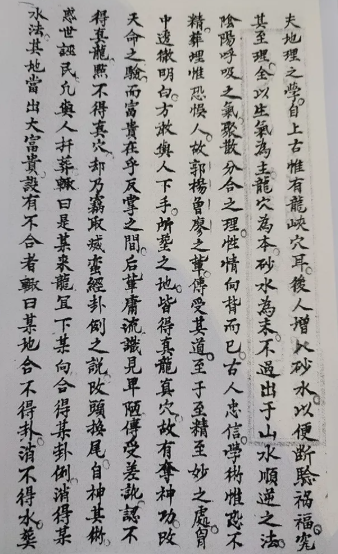 夫地理之學自上古惟有龍峽穴耳後人增以砂水以便断驗祸福究
其至理全以生氣為主龍穴為本砂水為末不過出于山水順逆之法
陰陽呼吸之氣聚散分合之理性情向背而已古人忠信學術惟恐不
精葬埋惟恐悞人故郭楊曾廖之輩傳受其道至于至精至妙之處胷
中透徹明白方敢與人下手所塟之地皆得真龍真穴故有奪神功改
天命之驗而富貴在乎反掌之間后輩庸流識見卑陋傳受差訛認不
得真龍㸃不得真穴却乃竊取滅蛮經卦例之說改頭換尾自神其術
惑世誣民凢與人扦葬輙曰是某来龍宜下某向合得某卦例消得某
水法其地當出大富貴設有不合者輙曰某地合不得卦消不得水葬